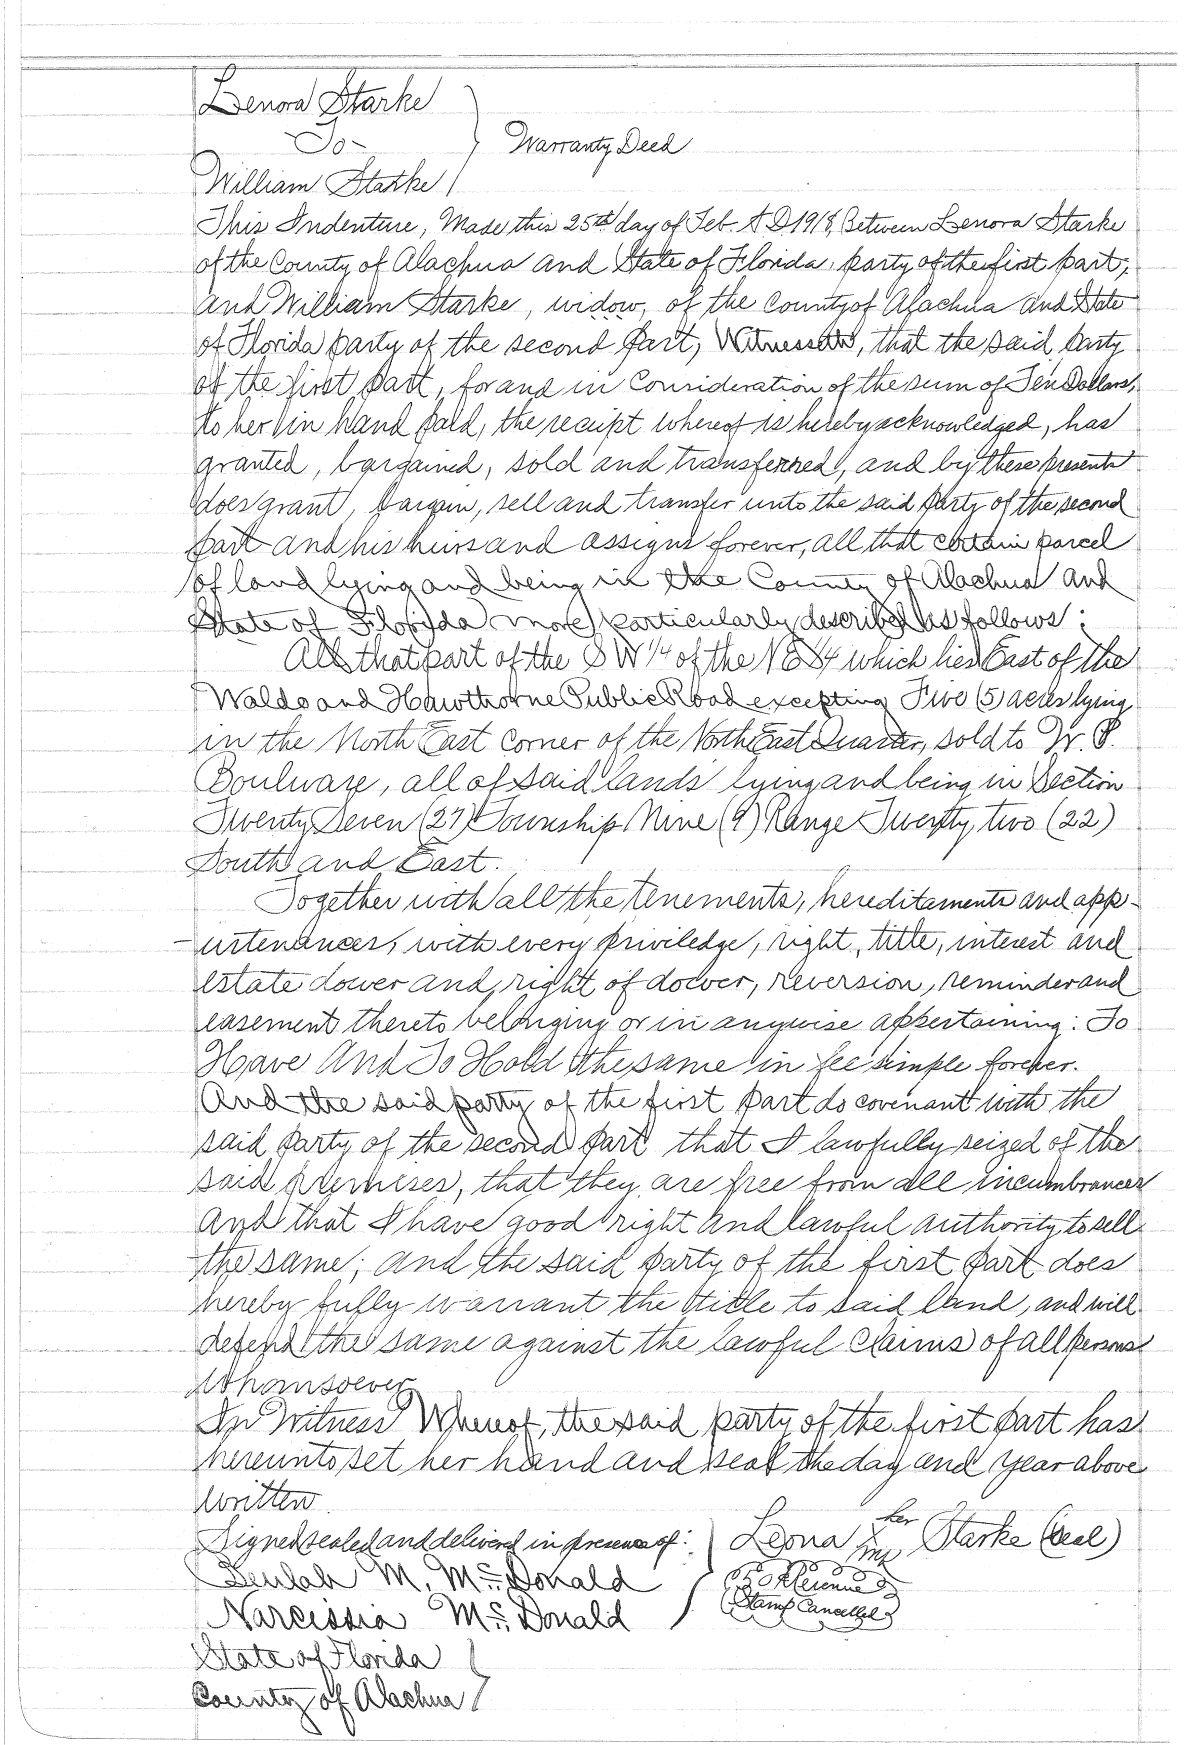 Lenora Starke
To
Warranty Deed
William Starke
This Indenture, Made this 25th day of Feb. A D 1918, Between Lenora Starke
of the County of Alachua and State of Florida, party of the first part,
and William Starke, widow, of the County of Alachua and State
of Florida party of the second part, Witnesseth, that the said party
of the first part, for and in Consideration of the sum of Ten Dollars,
to her in hand paid, the receipt whereof is hereby acknowledged, has
granted, bargained, sold and transferred, and by these presents
does grant, bargain, sell and transfer unto the said party of the second
part and his heirs and assigns forever, all that certain parcel
of land lying and being in the County of Alachua and
State of Florida more particularly described as follows:
All that part of the SW 1/4 of the NE 1/4 which lies East of the
Waldo and Hawthorne Public Road excepting Five (5) acres lying
in the North East Corner of the North East Quarter, sold to W. P.
Boulware, all of said lands lying and being in Section
Twenty Seven (27) Township Nine (9) Range Twenty two (22)
South and East.
Together with all the tenements, hereditaments and app-
urtenances, with every priviledge, right, title, interest and
estate dower and right of dower, reversion, reminder and
easement thereto belonging or in anywise appertaining: To
Have And To Hold the same in fee simple forever.
And the said party of the first part do covenant with the
said party of the second part that I lawfully seized of the
said premises, that they are free from all incumbrances
and that I have good right and lawful authority to sell
the same; and the said party of the first part does
hereby fully warrant the title to said land, and will
defend the same against the lawful Claims of all persons
whomsoever
In Witness Whereof, the said party of the first part has
hereunto set her hand and seal the day and year above
written
Signed sealed and delivered in presence of: Leona her X mk Starke (Seal)
Beulah M. McDonald 50 Revenue
Narcissia McDonald Stamp Cancelled
State of Florida
County of Alachua